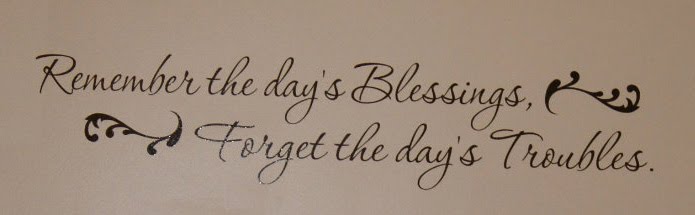 Remember the day's Blessings,
Forget the day's Troubles.